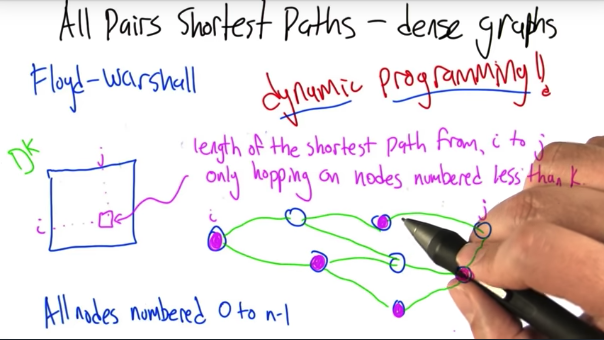 All Pairs Shortest Paths - dense graphs
Floyd-Warshall
dynamic programming!
D^k
j
i
length of the shortest path from i to j
only hopping on nodes numbered less than k.
i
j
All nodes numbered 0 to n-1